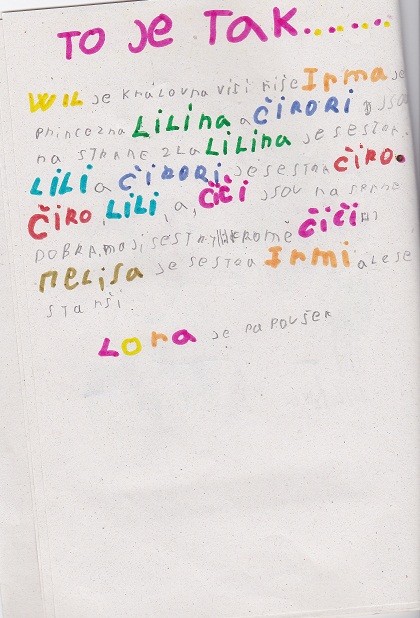 TO JE TAK.......
WIL JE KRÁLOVNA VÍŠÍ ŘÍŠE IRMA JE
PRINCEZNA LILINA A ČIRORI JSO
NA STRANĚ ZLA LILINA JE SESTR
LILI A ČIRORI JE SESTRA ČIRO.
ČIRO, LILI, A, ČIČI JSOU NA
DOBRA MAJÍ SESTRY KROMĚ ČIČI
MELISA JE SESTRA IRMI ALE SE
STARŠÍ.
LORA JE PAPOUŠEK